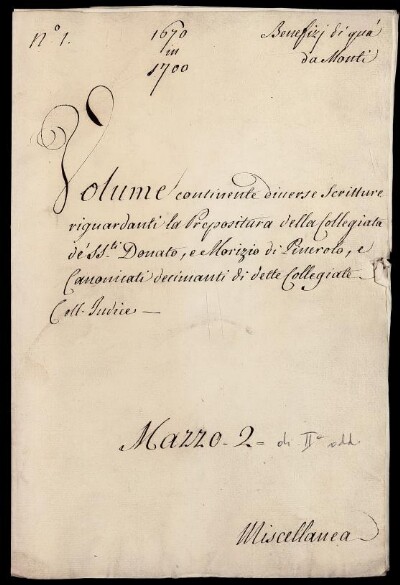 n.º 1.
1670
in
1700
Benefizj di quà
da Monti
Volume continente diverse Scritture
riguardanti la Prepositura della Collegiata
de' SS.ti Donato, e Morizio di Pinerolo, e
Canonicati decimanti di dette Collegiate
Coll-Indice
Mazzo. 2 = di IIª add.
Miscellanea